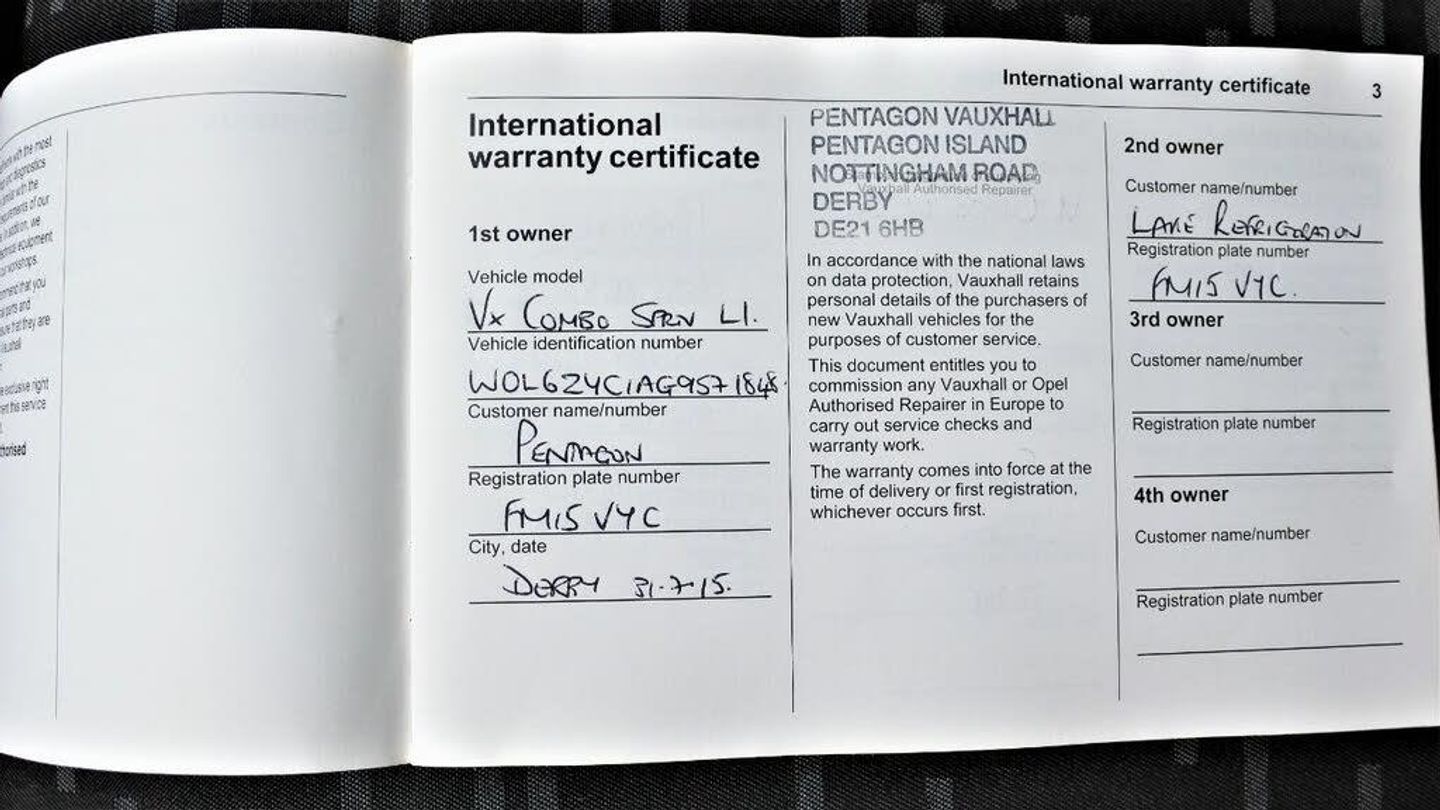 ents with the most
diagnostics
with the
quirements of our
In addition, we
equipment
workshops.
mmend that you
parts and
sure that they are
Vauxhall
exclusive right
this service
thorised
International warranty certificate 3
International
warranty certificate
1st owner
Vehicle model
Vx COMBO SPRN L1.
Vehicle identification number
WOL6ZYC1AG9571848
Customer name/number
PENTAGON
Registration plate number
FM15 VYC
City, date
DERBY 31-7-15.
PENTAGON VAUXHALL
PENTAGON ISLAND
NOTTINGHAM ROAD
Vauxhall Authorised Repairer
DERBY
DE21 6HB
In accordance with the national laws
on data protection, Vauxhall retains
personal details of the purchasers of
new Vauxhall vehicles for the
purposes of customer service.
This document entitles you to
commission any Vauxhall or Opel
Authorised Repairer in Europe to
carry out service checks and
warranty work.
The warranty comes into force at the
time of delivery or first registration,
whichever occurs first.
2nd owner
Customer name/number
LAKE REFRIGERATION
Registration plate number
FM15 VYC.
3rd owner
Customer name/number
Registration plate number
4th owner
Customer name/number
Registration plate number